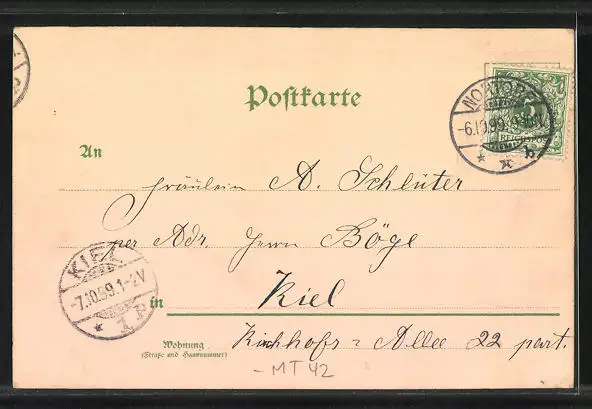 Postkarte
NORTORF
-6.10.99.
5
REICHSPOST
* * b.
An
Fräulein A. Schlüter
per Adr. Herrn Böge
KIEL
-7.10.99.1-2V
* 1 P
in Kiel
Wohnung
(Straße und Hausnummer)
Kirchhofs = Allee 22 part.
- MT 42